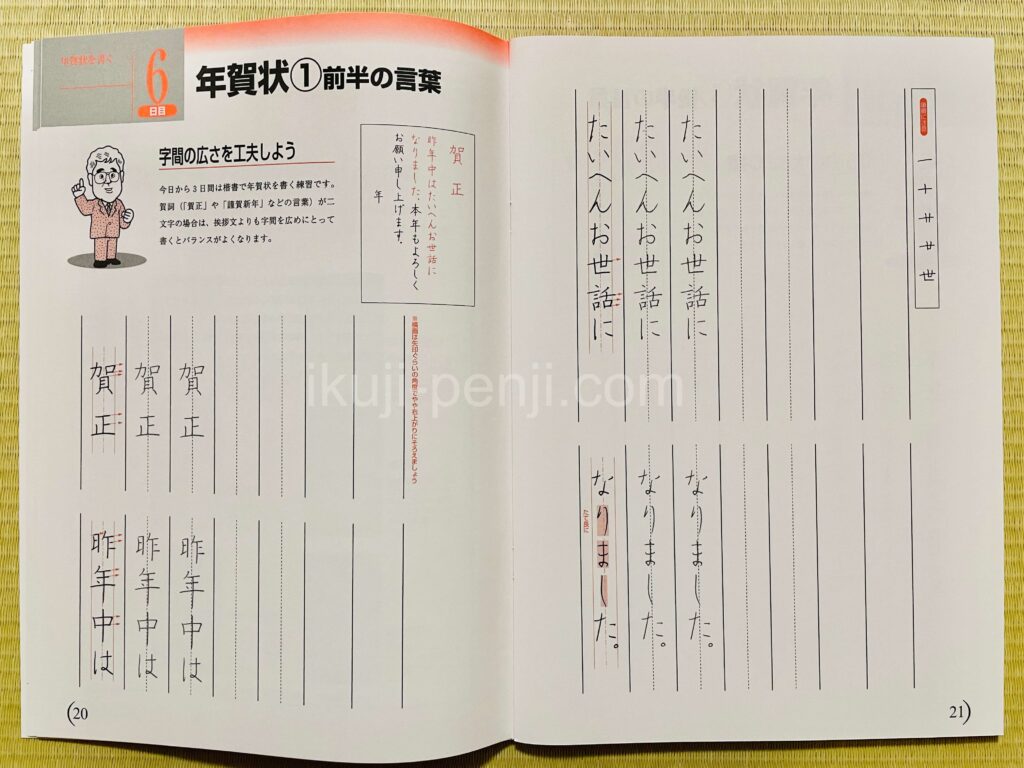 年賀状を書く
6
日目
年賀状①前半の言葉
字間の広さを工夫しよう
今日から3日間は楷書で年賀状を書く練習です。
賀詞（「賀正」や「謹賀新年」などの言葉）が二
文字の場合は、挨拶文よりも字間を広めにとって
書くとバランスがよくなります。
賀正
昨年中はたいへんお世話に
なりました。本年もよろしく
お願い申し上げます。
年
※横画は矢印ぐらいの角度でやや右上がりにそろえましょう
賀正
賀正
賀正
昨年中は
昨年中は
昨年中は
(20
一十廿丗世
たいへんお世話に
たいへんお世話に
たいへんお世話に
なりました。
なりました。
なりました。
21)
ikuji-penji.com